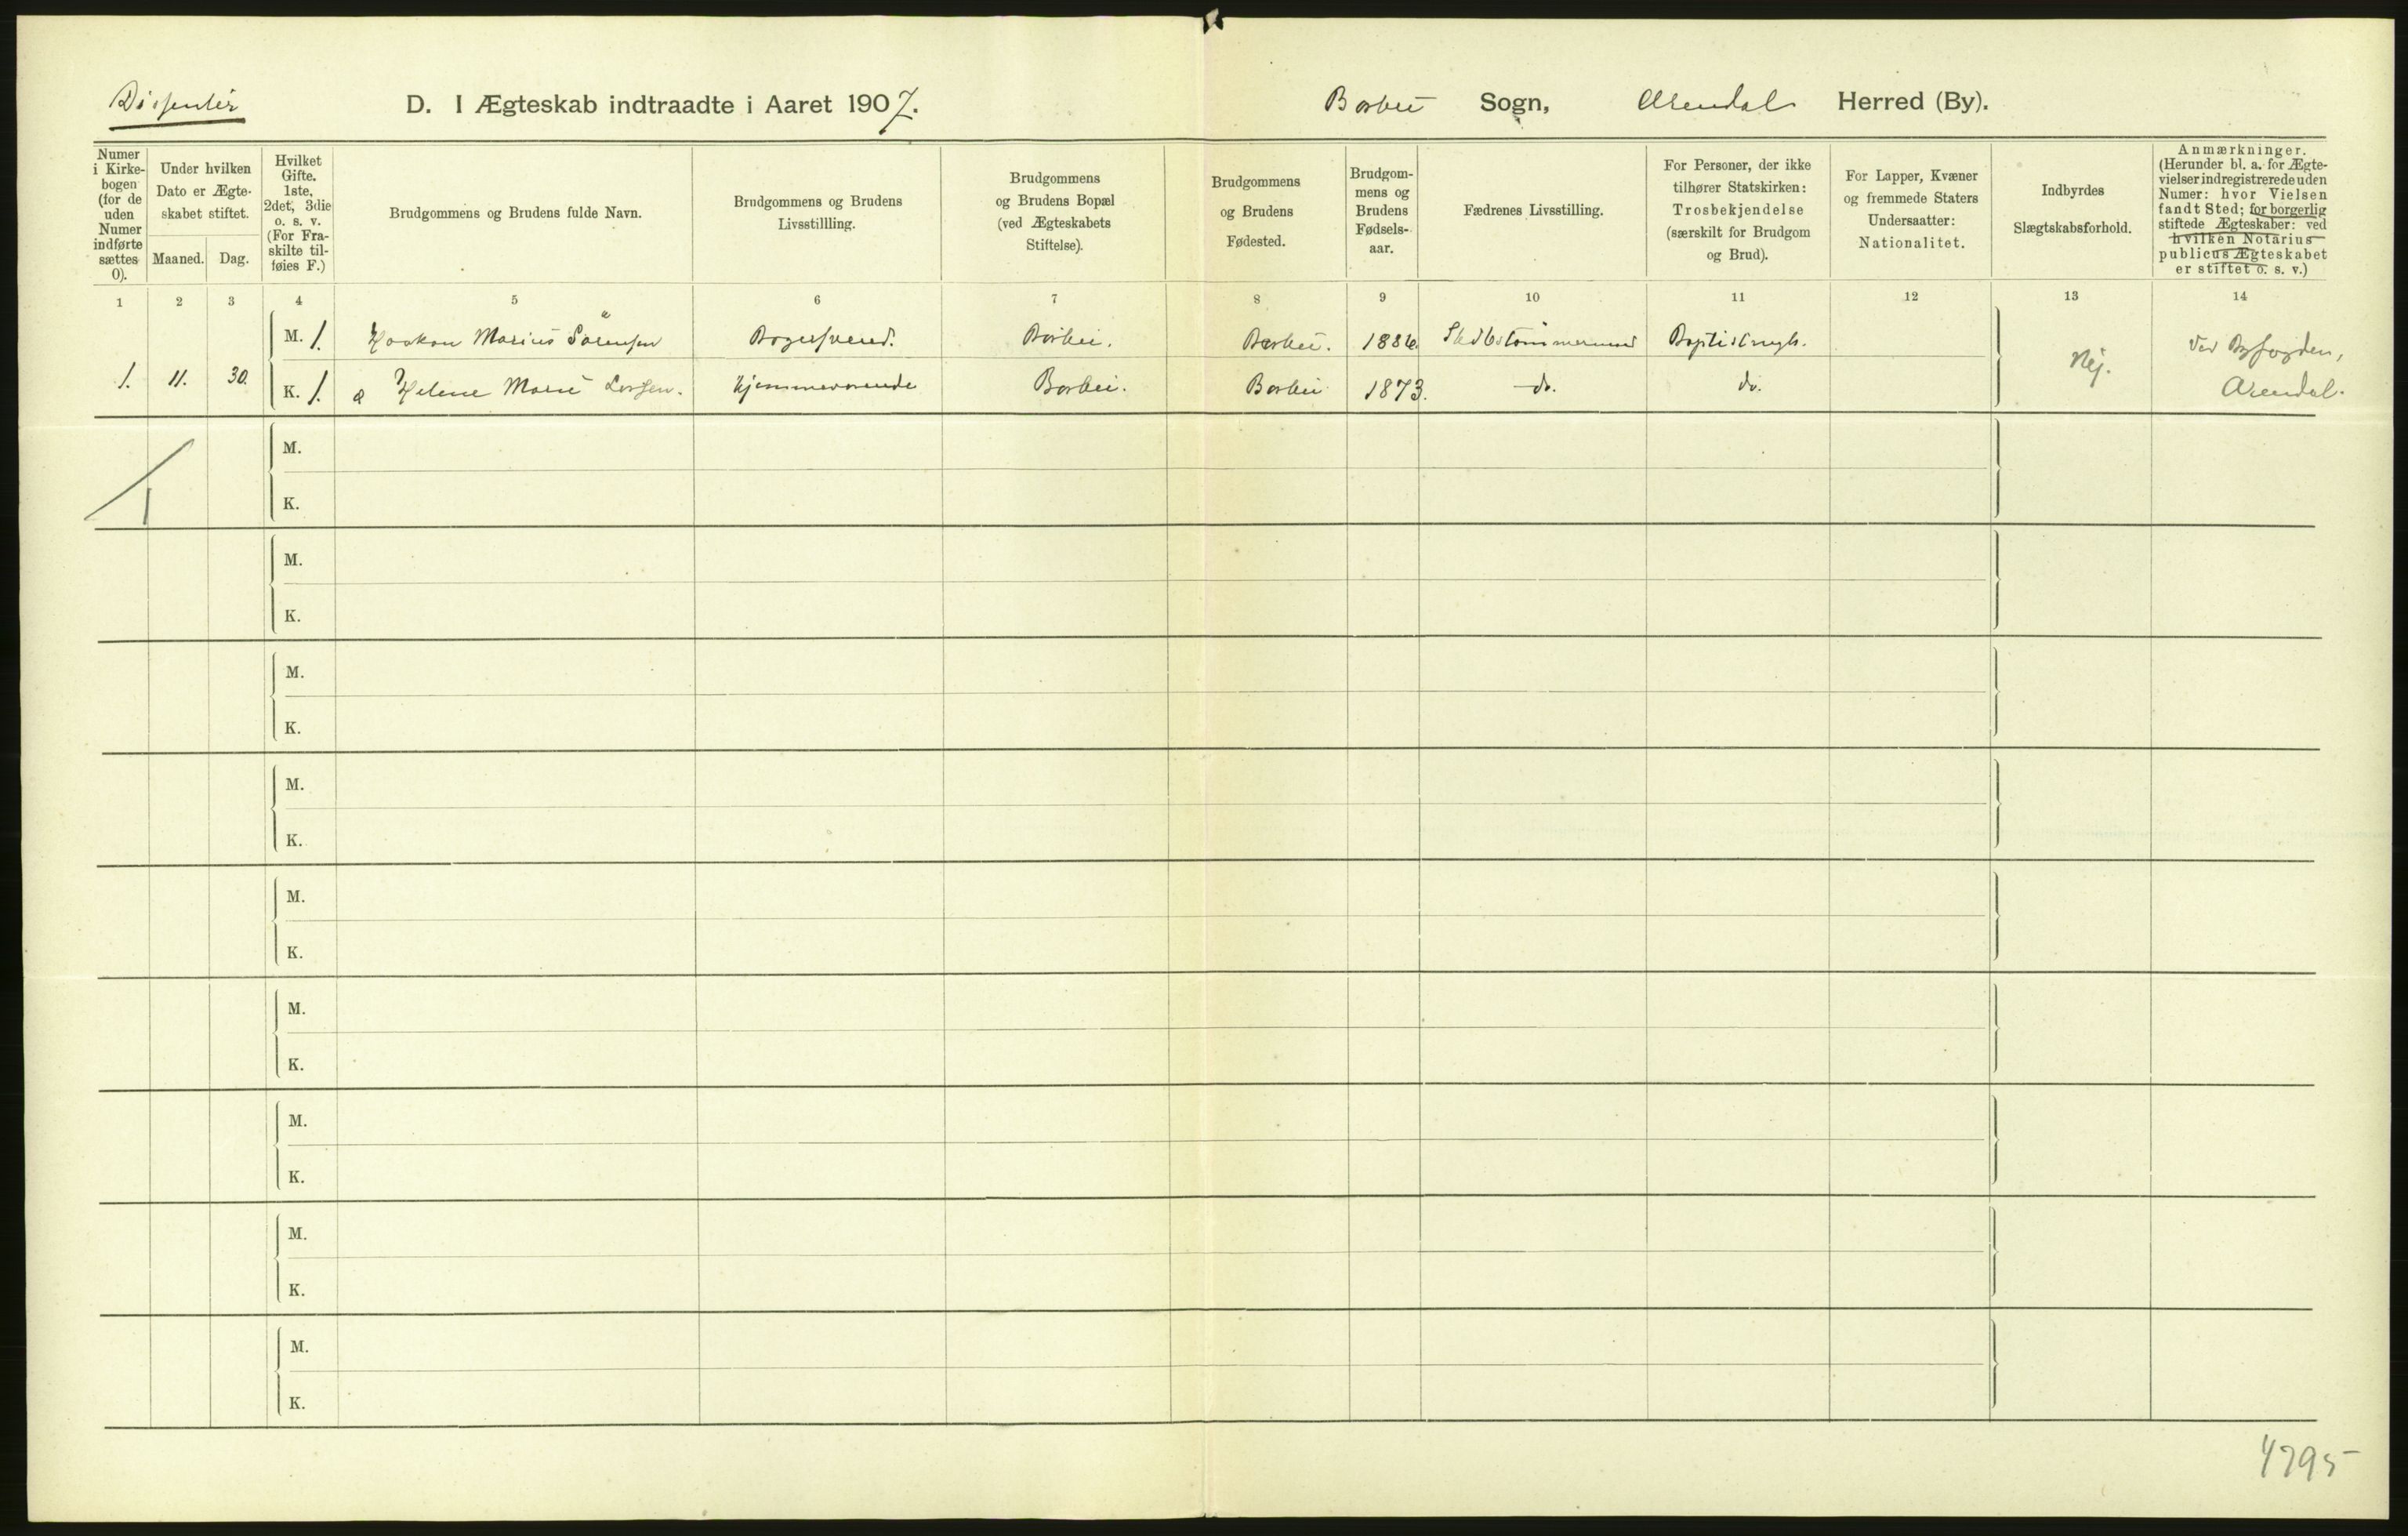 Dissenter
D. I Ægteskab indtraadte i Aaret 1907.
Barbu Sogn, Arendal Herred (By).
Numer i Kirke-
bogen
(for de
uden
Numer
indførte
sættes
0).
Under hvilken
Dato er Ægte-
skabet stiftet.
Maaned. Dag.
Hvilket
Gifte.
1ste,
2det, 3die
o. s. v.
(For Fra-
skilte til-
føies F.)
Brudgommens og Brudens fulde Navn.
Brudgommens og Brudens
Livsstillling.
Brudgommens
og Brudens Bopæl
(ved Ægteskabets
Stiftelse).
Brudgommens
og Brudens
Fødested.
Brudgom-
mens og
Brudens
Fødsels-
aar.
Fædrenes Livsstilling.
For Personer, der ikke
tilhører Statskirken:
Trosbekjendelse
(særskilt for Brudgom
og Brud).
For Lapper, Kvæner
og fremmede Staters
Undersaatter:
Nationalitet.
Indbyrdes
Slægtskabsforhold.
Anmærkninger.
(Herunder bl. a. for Ægte-
vielser indregistrerede uden
Numer: hvor Vielsen
fandt Sted; for borgerlig
stiftede Ægteskaber: ved
hvilken Notarius
publicus Ægteskabet
er stiftet o. s. v.)
1 2 3 4 5 6 7 8 9 10 11 12 13 14
M. 1. Haakon Marius Sørensen Bagersvend. Barbu. Barbu. 1886 Skibstømmermand Ved Byfogden,
1. 11. 30. Nej.
K. 1. Helene Marie Larsen. Hjemmeværende Barbu. Barbu 1873. do. do. Arendal.
1
M.
K.
M.
K.
M.
K.
M.
K.
M.
K.
M.
K.
M.
K.
M.
K.
M.
K.
4795